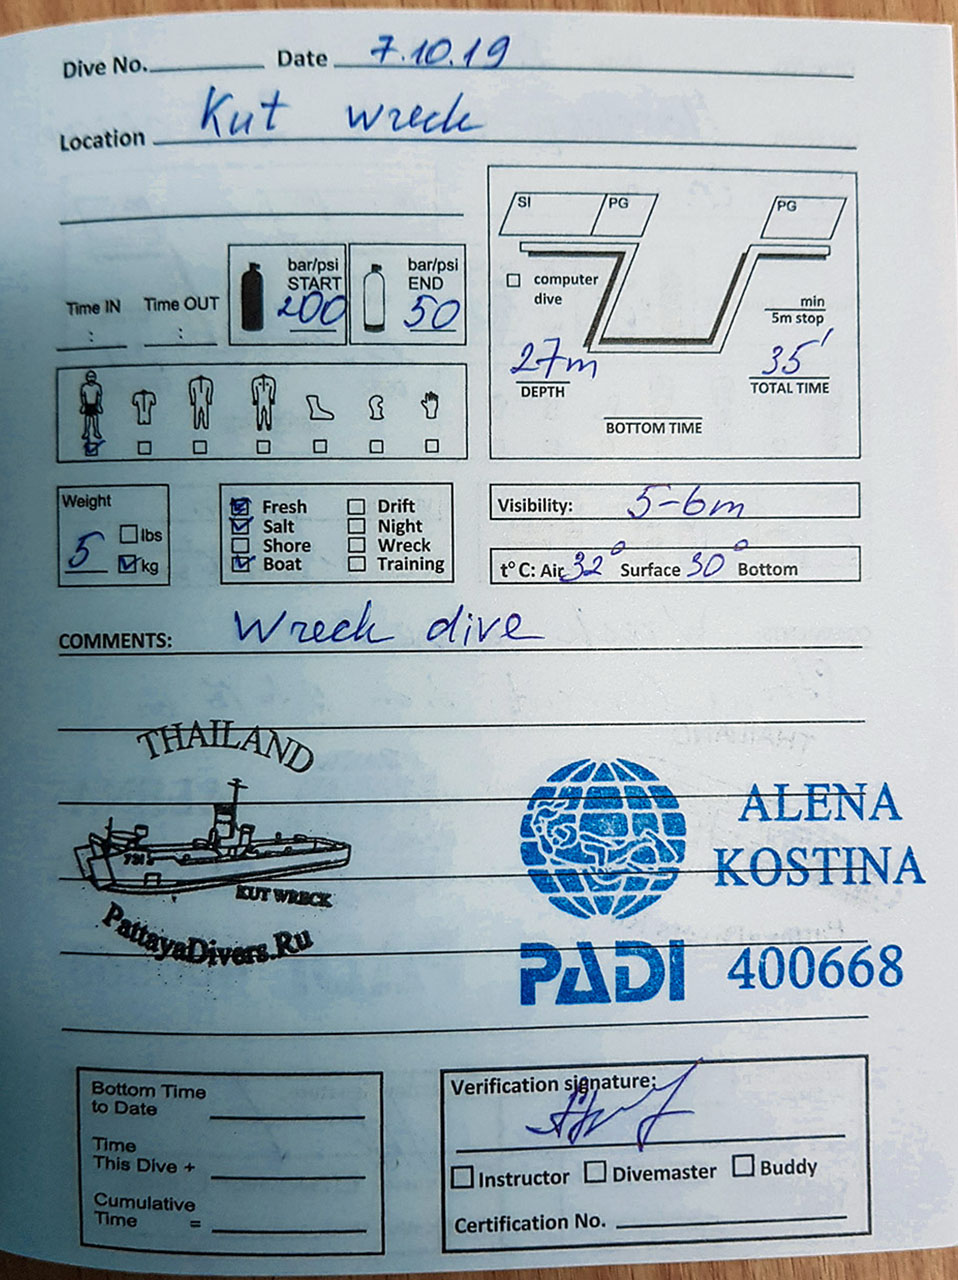 Dive No. Date 7.10.19
Location Kut wreck
SI PG PG
bar/psi START 200 bar/psi END 50
Time IN Time OUT
: :
computer dive
min
5m stop
27m 35'
DEPTH TOTAL TIME
BOTTOM TIME
Weight
5 lbs
kg
Fresh Drift
Salt Night
Shore Wreck
Boat Training
Visibility: 5-6m
t° C: Air 32° Surface 30° Bottom
COMMENTS: Wreck dive
THAILAND
731
KUT WRECK
PattayaDivers.Ru
ALENA
KOSTINA
PADI 400668
Bottom Time
to Date
Time
This Dive +
Cumulative
Time =
Verification signature:
Instructor Divemaster Buddy
Certification No.